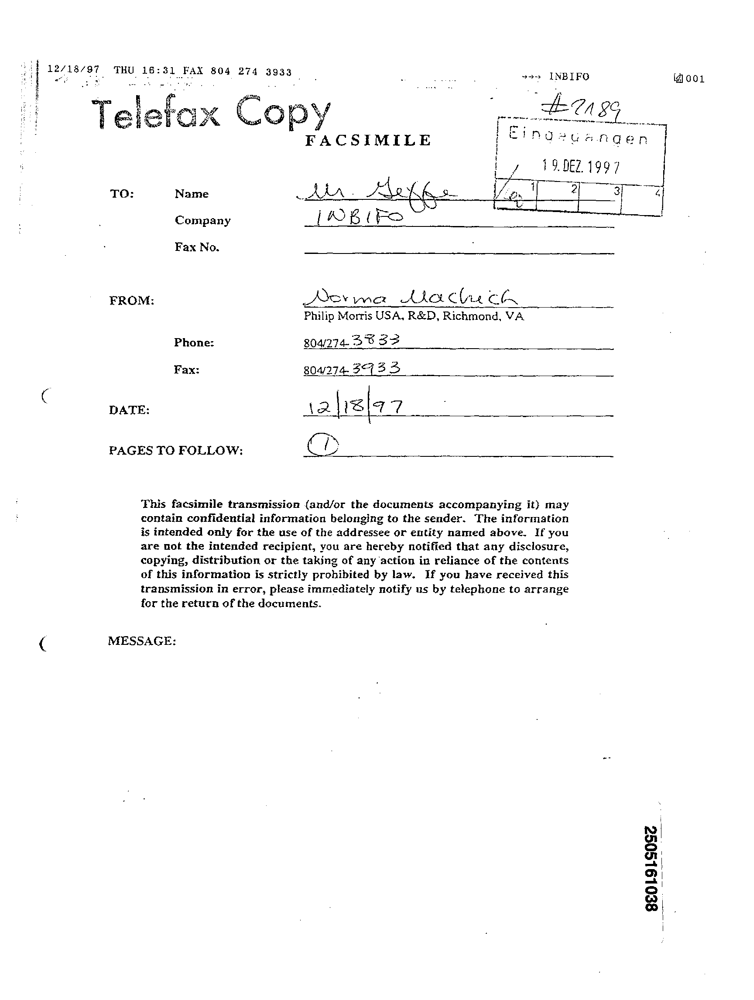 12/18/97 THU 16:31 FAX 804 274 3933
→→→ INBIFO
001
Telefax Copy
#7189
FACSIMILE
Eingegangen
19. DEZ. 1997
1 2 3 4
TO: Name Mr. Geffe
Company INBIFO
Fax No.
FROM: Norma
Philip Morris USA, R&D, Richmond, VA
Phone: 804/274-3833
Fax: 804/274-3933
DATE: 12/18/97
PAGES TO FOLLOW: 1
This facsimile transmission (and/or the documents accompanying it) may
contain confidential information belonging to the sender. The information
is intended only for the use of the addressee or entity named above. If you
are not the intended recipient, you are hereby notified that any disclosure,
copying, distribution or the taking of any action in reliance of the contents
of this information is strictly prohibited by law. If you have received this
transmission in error, please immediately notify us by telephone to arrange
for the return of the documents.
MESSAGE:
2505161038